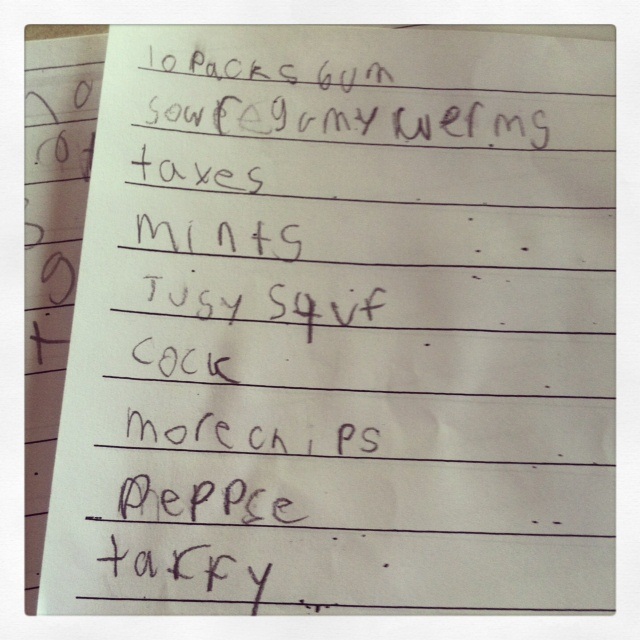 10 Packs Gum
sowre gumy werms
taxes
mints
Jusy squf
cock
more chips
Pheppse
taffy